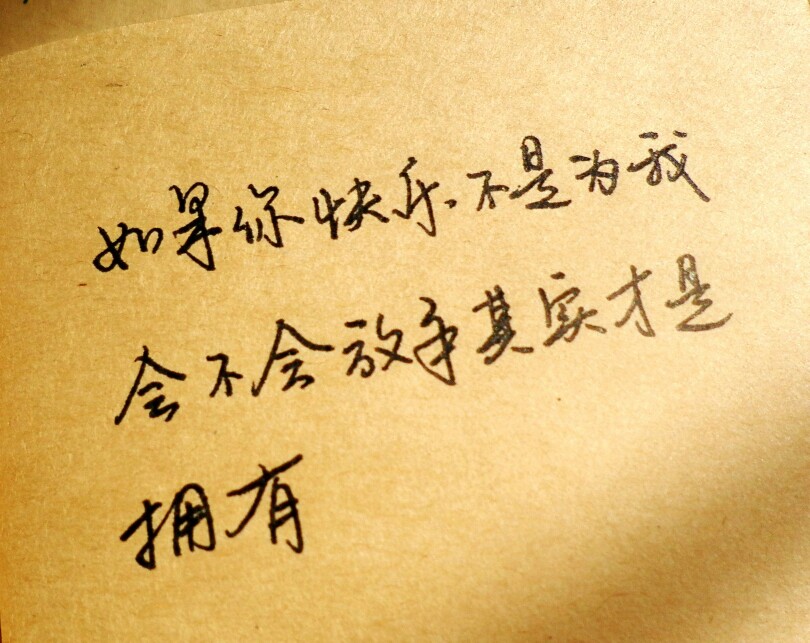 如果你快乐.不是为我
会不会放手其实才是
拥有